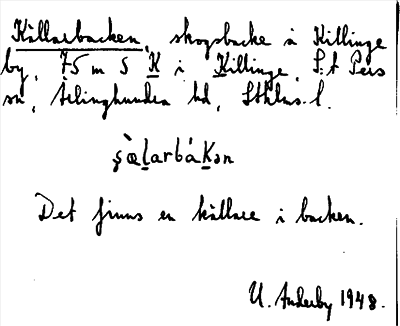 Källarbacken, skogsbacke å Killinge
by, 75 m S K i Killinge, S:t Pers
sn, Ärlinghundra hd, Sthlms. l.
Det finns en källare i backen.
U. Anderby 1948.